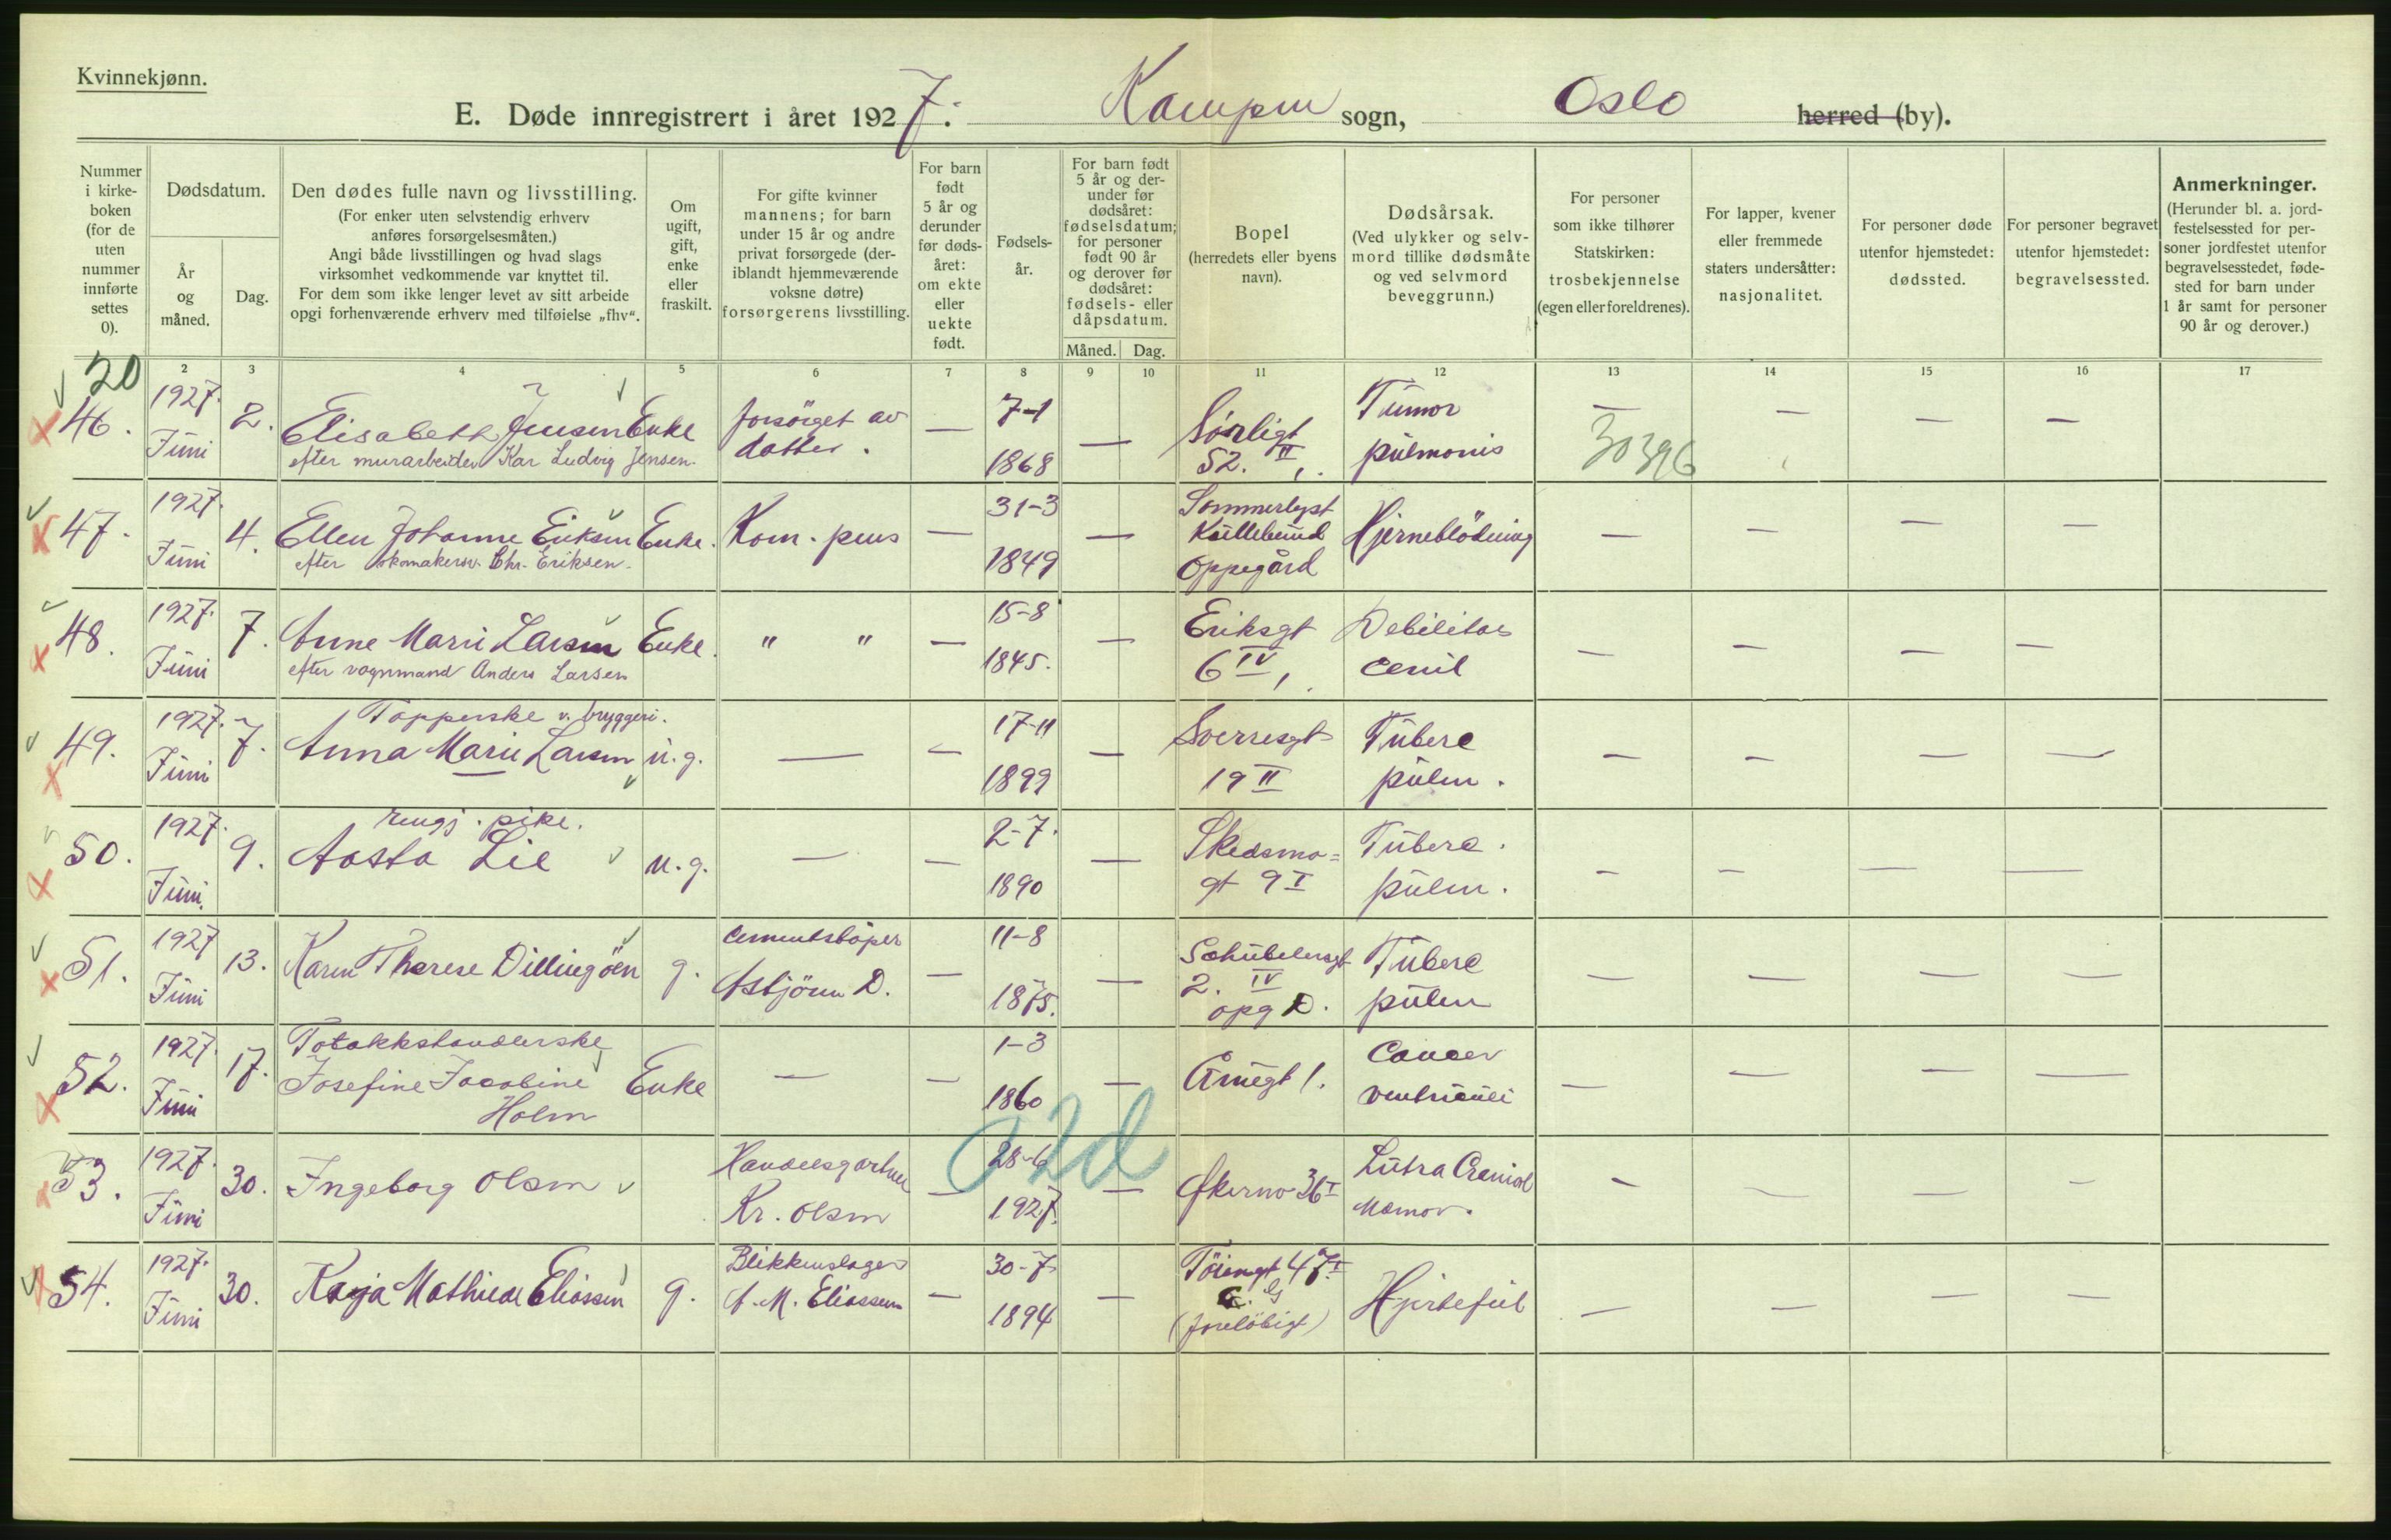 Kvinnekjønn.
E. Døde innregistrert i året 1927. Kampen sogn, Oslo herred (by).
Nummer i kirke- boken (for de uten nummer innførte settes 0).
Dødsdatum.
År og måned.
Dag.
Den dødes fulle navn og livsstilling.
(For enker uten selvstendig erhverv
anføres forsørgelsesmåten.)
Angi både livsstillingen og hvad slags
virksomhet vedkommende var knyttet til.
For dem som ikke lenger levet av sitt arbeide
opgi forhenværende erhverv med tilføielse „fhv“.
Om ugift, gift, enke eller fraskilt.
For gifte kvinner
mannens; for barn
under 15 år og andre
privat forsørgede (der-
iblandt hjemmeværende
voksne døtre)
forsørgerens livsstilling.
For barn født 5 år og derunder før døds- året: om ekte eller uekte født.
Fødsels- år.
For barn født
5 år og der-
under før
dødsåret:
fødselsdatum;
for personer
født 90 år
og derover før
dødsåret:
fødsels- eller
dåpsdatum.
Måned. Dag.
Bopel
(herredets eller byens
navn).
Dødsårsak.
(Ved ulykker og selv-
mord tillike dødsmåte
og ved selvmord
beveggrunn.)
For personer
som ikke tilhører
Statskirken:
trosbekjennelse
(egen eller foreldrenes).
For lapper, kvener
eller fremmede
staters undersåtter:
nasjonalitet.
For personer døde
utenfor hjemstedet:
dødssted.
For personer begravet
utenfor hjemstedet:
begravelsessted.
Anmerkninger.
(Herunder bl. a. jord-
festelsessted for per-
soner jordfestet utenfor
begravelsesstedet, føde-
sted for barn under
1 år samt for personer
90 år og derover.)
20 2 3 4 5 6 7 8 9 10 11 12 13 14 15 16 17
46. 1927. Juni 2. Elisabeth Jensen Enke forsörget av datter. — 7-1 1868 — Sörligt 52. II, Tumor pulmonis — — — —
efter murarbeider Kar Ludvig Jensen.
30396
47. 1927. Juni 4. Ellen Johanne Eriksen Enke. Kom. pens — 31-3 1849 — Sommerlyst Kullebund Oppegård Hjerneblödning — — — —
efter skomakersv. Chr. Eriksen.
48. 1927. Juni 7. Anne Marie Larsen Enke. " " — 15-8 1845. — Eriksgt 6 IV, Debilitas cenil — — — —
efter vognmand Anders Larsen
49. 1927. Juni 7. Tapperske v. bryggeri. Anna Marie Larsen u.g. — — 17-11 1899 — Sverresgt 19 II Tuberc pulm. — — — —
50. 1927. Juni. 9. rengj. pike. Aasta Lie u.g. — — 2-7. 1890 — Skedsmo= gt 9 I Tuberc. pulm. — — — —
51. 1927 Juni 13. Karen Therese Dillingöen g. Cementstöper Asbjörn D. — 11-8 1875. — Schübelersgt 2. IV opg D. Tuberc pulm — — — —
52. 1927. Juni 17. Tobakkshandlerske Josefine Jacobine Holm Enke — — 1-3 1860 — Amegt 1. Cancer ventriculi — — — —
53. 1927. Juni 30. Ingeborg Olsen Handelsgartner Kr. Olsen — 28-6 1927. — Økernv 36 I — — — —
02d
54. 1927. Juni 30. Kaja Mathilde Eliassen g. Blikkenslager A. M. Eliassen — 30-7 1894 — Töiengt 47 I (foreløbigt) Hjertefeil — — — —